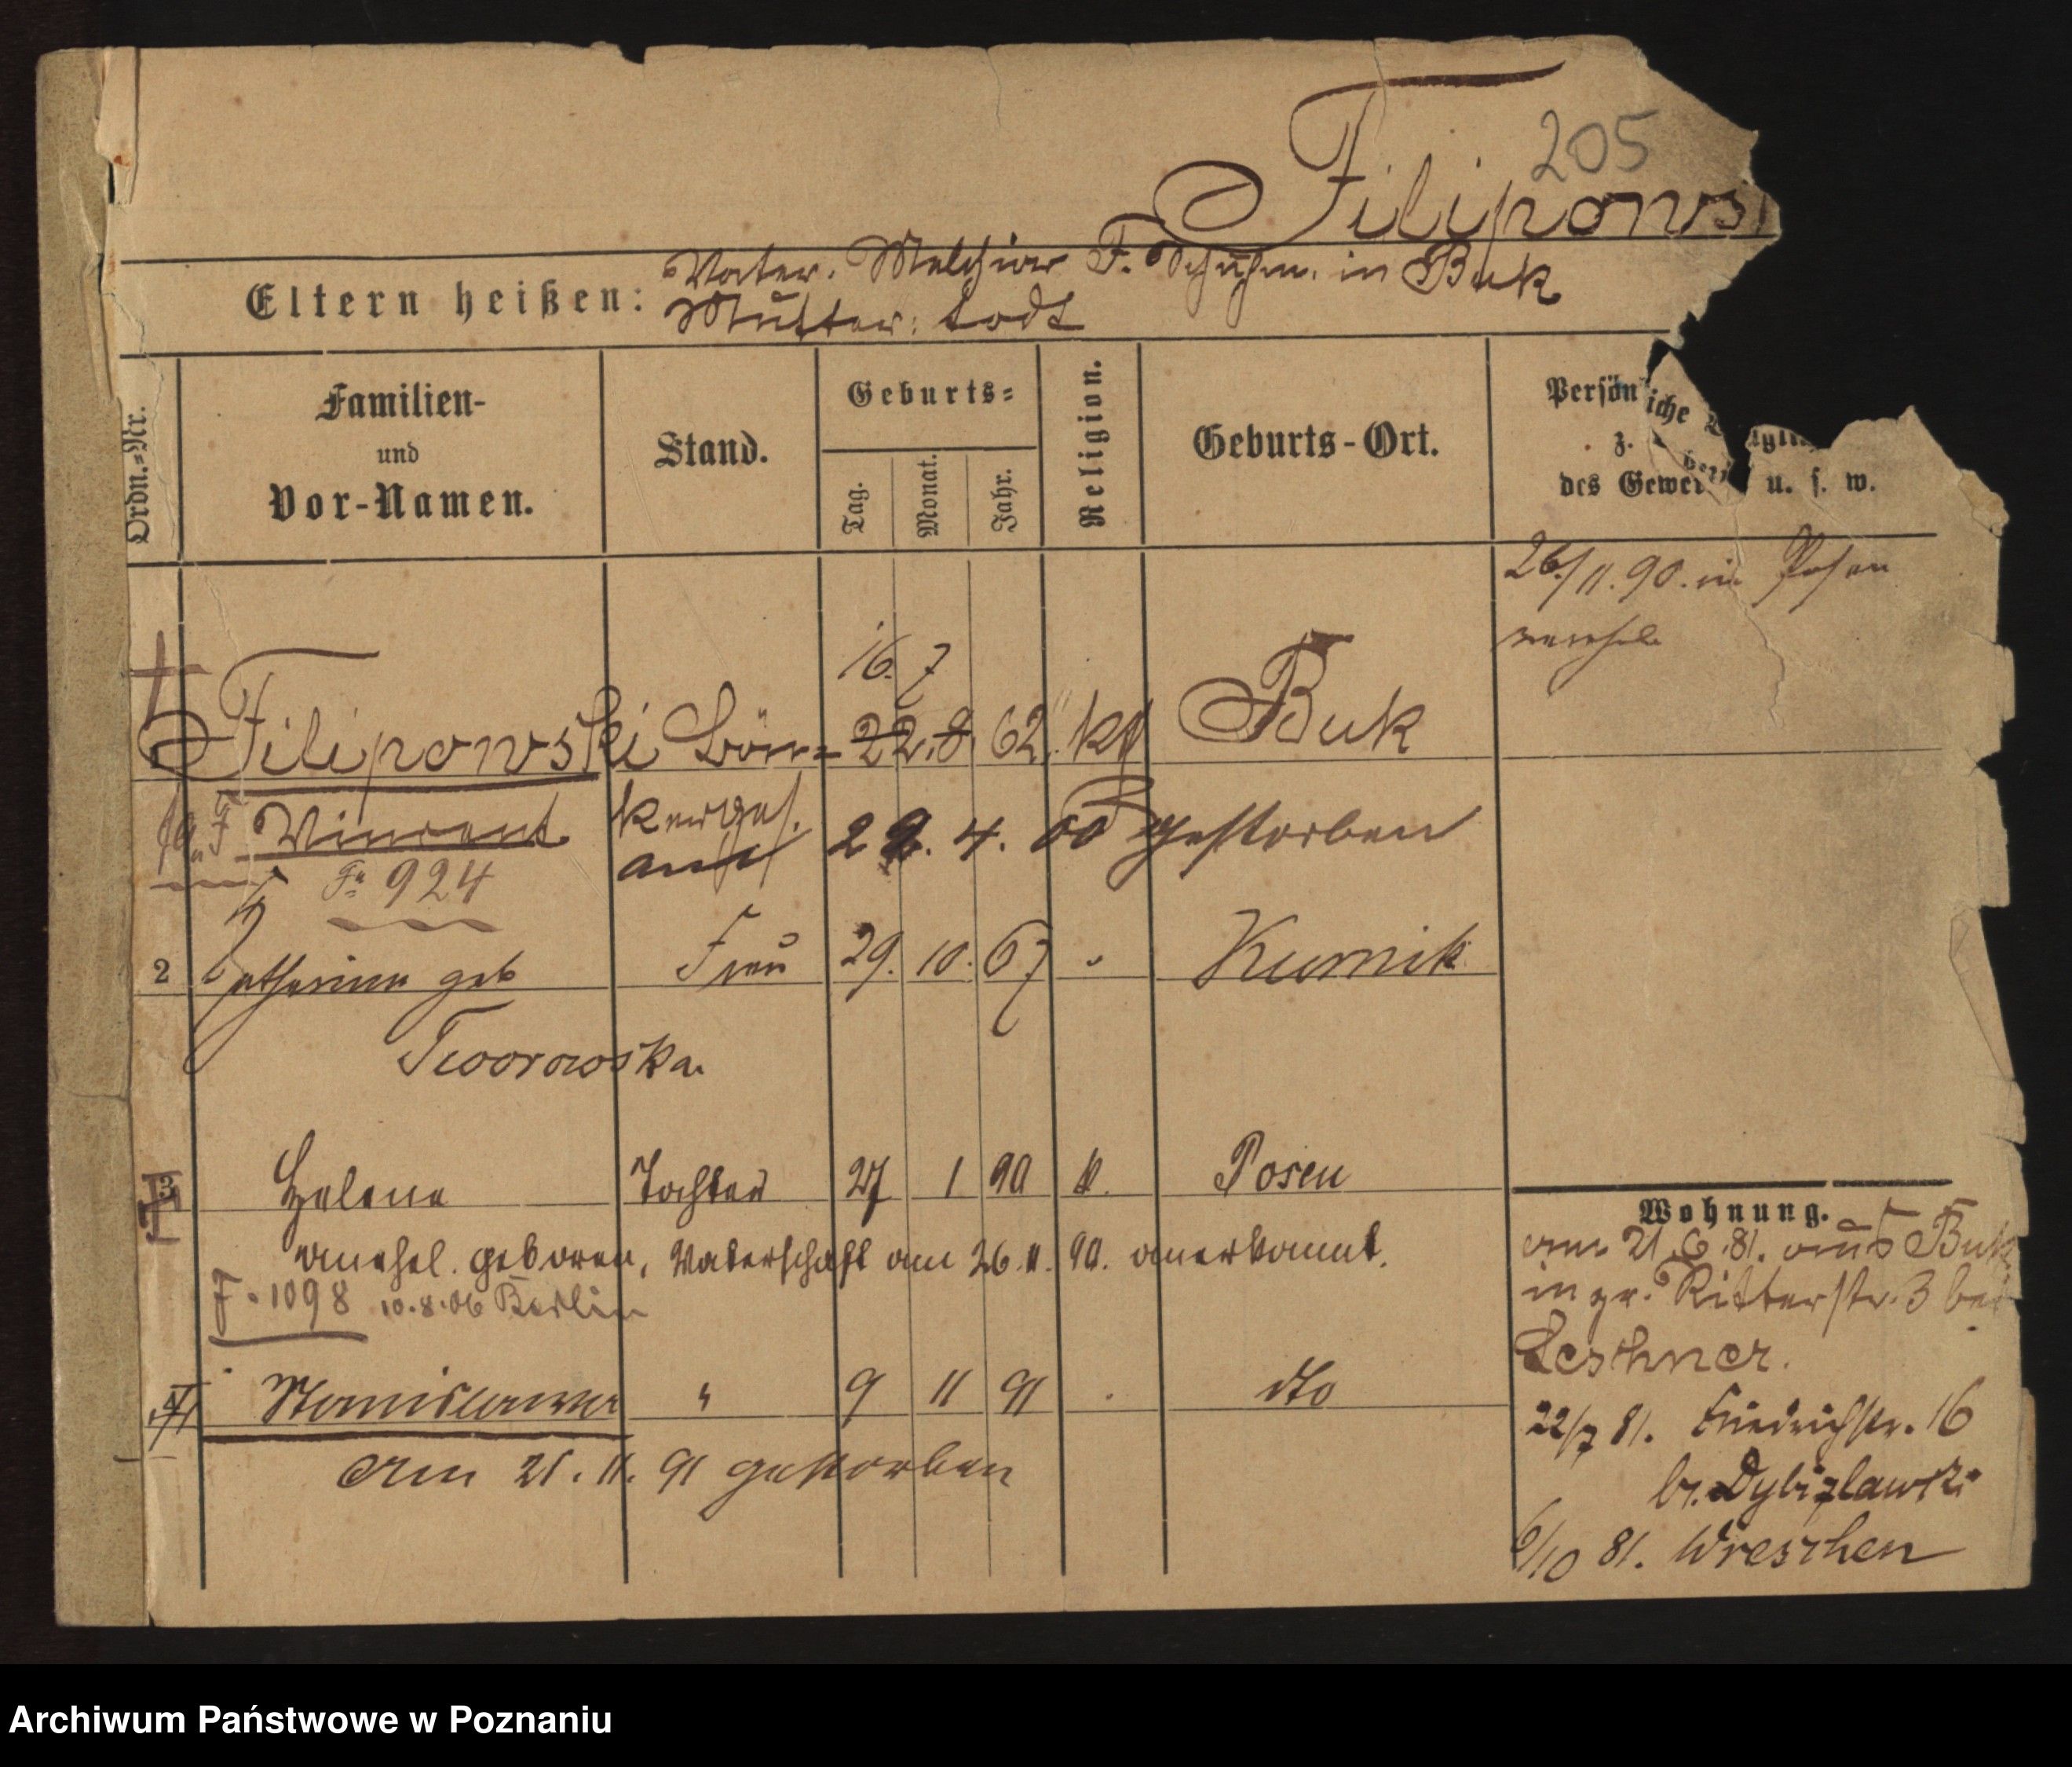 205
Filipows
Eltern heißen: Vater. Melchior F. Schuhm. in Buk
Mutter: todt
Ordn.-Nr.
Familien-
und
Vor-Namen.
Stand.
Geburts=
Tag.
Monat.
Jahr.
Religion.
Geburts-Ort.
Persön iche
z.
des Gewer u. s. w.
26/11.90. in Posen
verehel.
16. 7
Filipowski Bött= 22. 8. 62. kt Buk
Vincent
22. 4. 00 gestorben
Fa 924
2 Katharina geb Frau 29. 10. 67 Kurnik
Tworowska.
3 Helena Tochter 27 1 90 k. Posen
unehel. geboren, Vaterschaft am 26.11.90. anerkannt.
F. 1098 10.8.06 Berlin
4 Stanislawa " 9 11 91 . dto
am 21. 11. 91 gestorben
Wohnung.
am 21.6.81. aus Buk
in gr. Ritterstr. 3 bei
Leschner.
22/7 81. Friedrichstr. 16
b. Dybizlawski
6/10 81. Wreschen
Archiwum Państwowe w Poznaniu